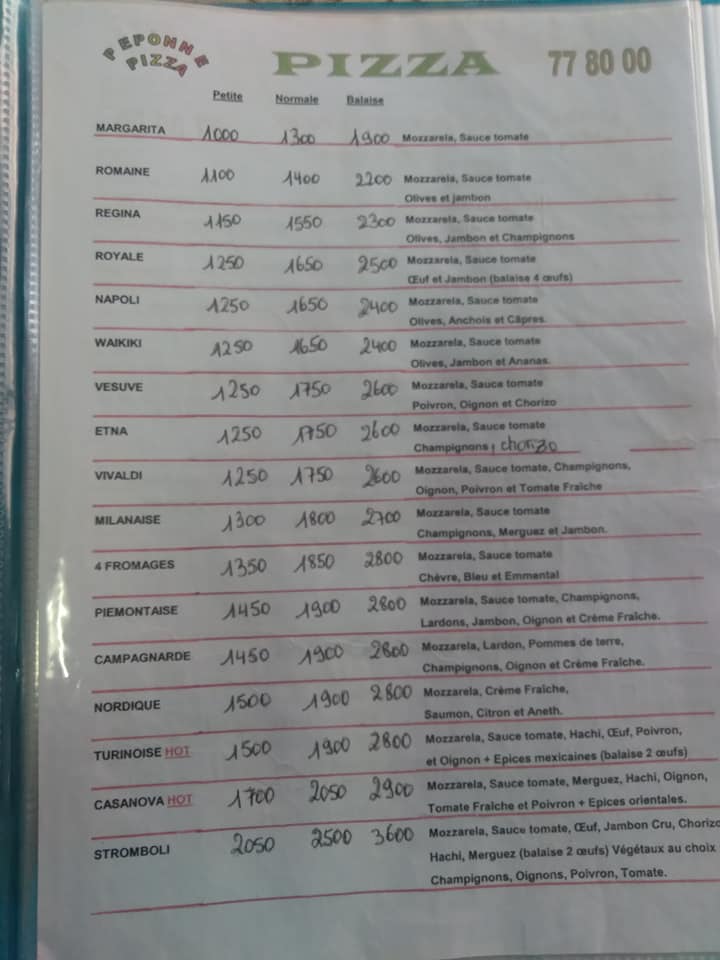 PEPONNE
PIZZA
PIZZA 77 80 00
Petite Normale Balaise
MARGARITA 1000 1300 1900 Mozzarela, Sauce tomate
ROMAINE 1100 1400 2200 Mozzarela, Sauce tomate
Olives et jambon
REGINA 1150 1550 2300 Mozzarela, Sauce tomate
Olives, Jambon et Champignons
ROYALE 1250 1650 2500 Mozzarela, Sauce tomate
Œuf et Jambon (balaise 4 œufs)
NAPOLI 1250 1650 2400 Mozzarela, Sauce tomate
Olives, Anchois et Câpres.
WAIKIKI 1250 1650 2400 Mozzarela, Sauce tomate
Olives, Jambon et Ananas.
VESUVE 1250 1750 2600 Mozzarela, Sauce tomate
Poivron, Oignon et Chorizo
ETNA 1250 1750 2600 Mozzarela, Sauce tomate
Champignons, chorizo
VIVALDI 1250 1750 2600 Mozzarela, Sauce tomate, Champignons,
Oignon, Poivron et Tomate Fraîche
MILANAISE 1300 1800 2700 Mozzarela, Sauce tomate
Champignons, Merguez et Jambon.
4 FROMAGES 1350 1850 2800 Mozzarela, Sauce tomate
Chèvre, Bleu et Emmental
PIEMONTAISE 1450 1900 2800 Mozzarela, Sauce tomate, Champignons,
Lardons, Jambon, Oignon et Crème Fraîche.
CAMPAGNARDE 1450 1900 2800 Mozzarela, Lardon, Pommes de terre,
Champignons, Oignon et Crème Fraîche.
NORDIQUE 1500 1900 2800 Mozzarela, Crème Fraîche,
Saumon, Citron et Aneth.
TURINOISE HOT 1500 1900 2800 Mozzarela, Sauce tomate, Hachi, Œuf, Poivron,
et Oignon + Epices mexicaines (balaise 2 œufs)
CASANOVA HOT 1700 2050 2900 Mozzarela, Sauce tomate, Merguez, Hachi, Oignon,
Tomate Fraîche et Poivron + Epices orientales.
STROMBOLI 2050 2500 3600 Mozzarela, Sauce tomate, Œuf, Jambon Cru, Chorizo
Hachi, Merguez (balaise 2 œufs) Végétaux au choix
Champignons, Oignons, Poivron, Tomate.